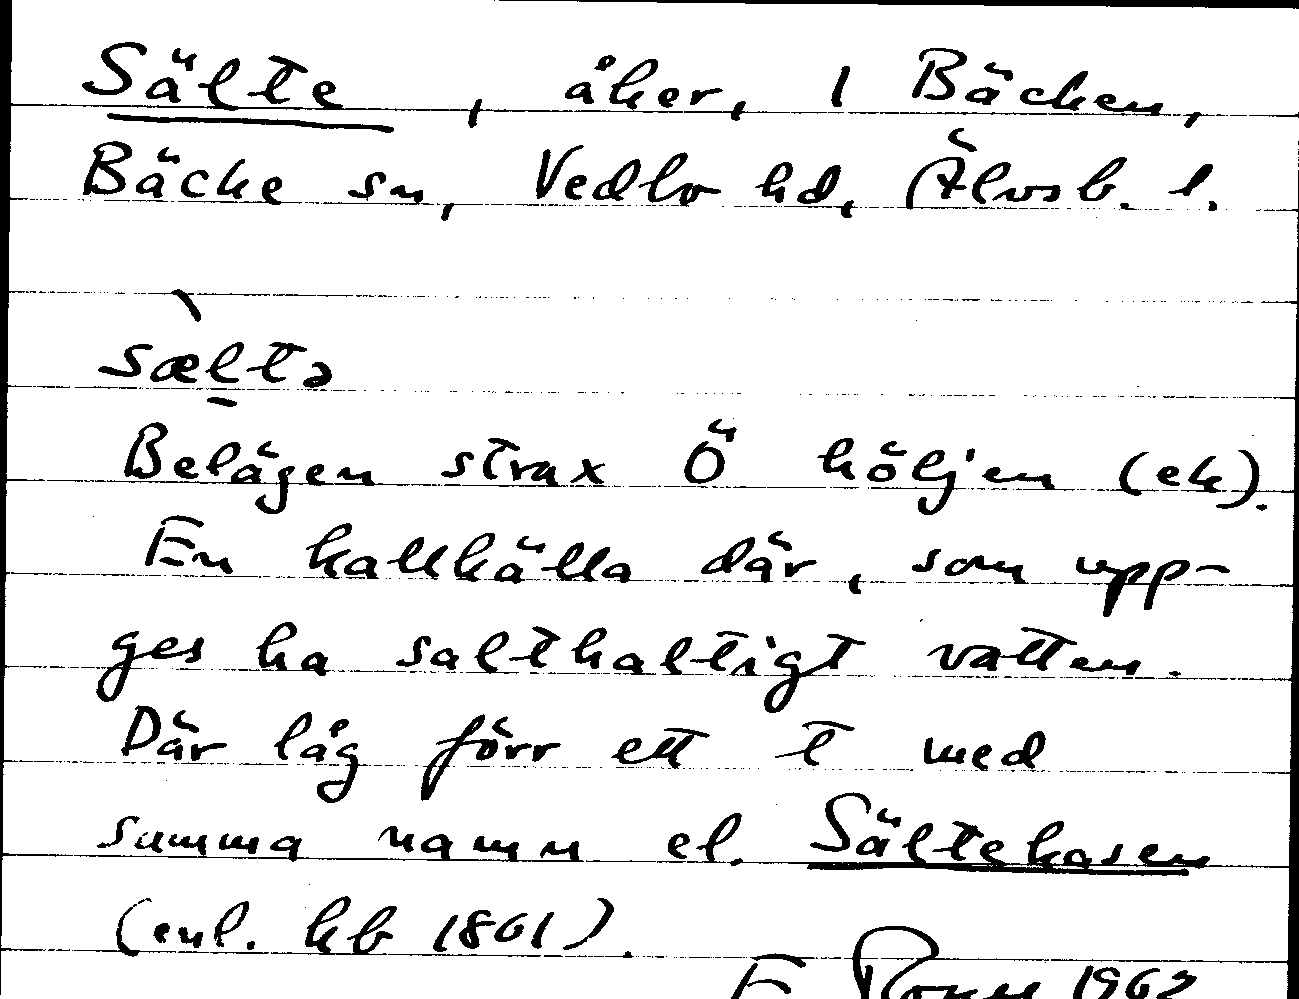 Sälte, åker, 1 Bäcken,
Bäcke sn, Vedbo hd, Älvsb. l.
sæ̀ltə
Belägen strax Ö höljen (ek).
En kallkälla där, som upp-
ges ha salthaltigt vatten.
Där låg förr ett t med
samma namn el. Sältekasen
(enl. kb 1861).
E 1962